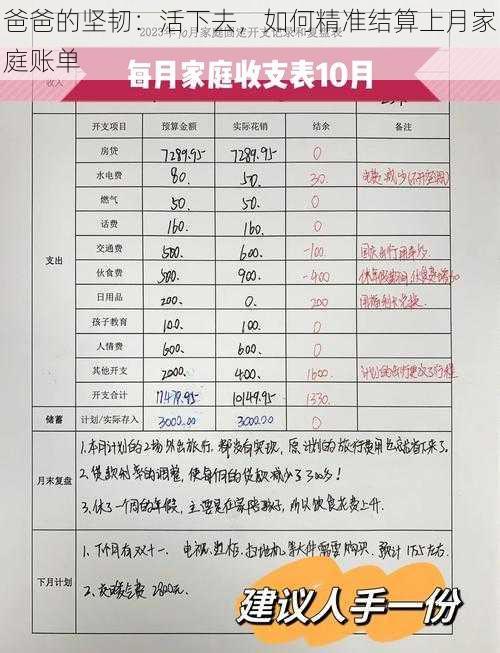 爸爸的坚韧：活下去，如何精准结算上月家
庭账单
2023年10月家庭固定开支记录和复盘表
每月家庭收支表10月
收入
开支项目 预算金额 实际花销 结余 备注
房贷 7289.95 7289.95 0
水电费 80. 50. 30.
燃气 50. 50. 0
话费 160. 160. 0
交通费 500. 600. -100
支出
伙食费 500. 900. -400
日用品 200. 0. 200
孩子教育 100. 100. 0
人情费 600. 600. 0
其他开支 2000. 400. 1600.
开支合计 11479.95 10149.95 1330.
储蓄 计划/实际存入 3000.00 3000.00 0
1.本月计划的2场外出旅行，都没有实现，原计划的旅行费用也就省下来了。
月末复盘
2.贷款利率的调整，使每月的贷款减少了300多！
3.休了一个月的年假，主要是在家陪孩子，所以饮食花费上升.
1.下个月有双十一，电视、扫地机等大件需要购买，预计1万5左右.
下月计划
2.交暖气费2800元.
建议人手一份